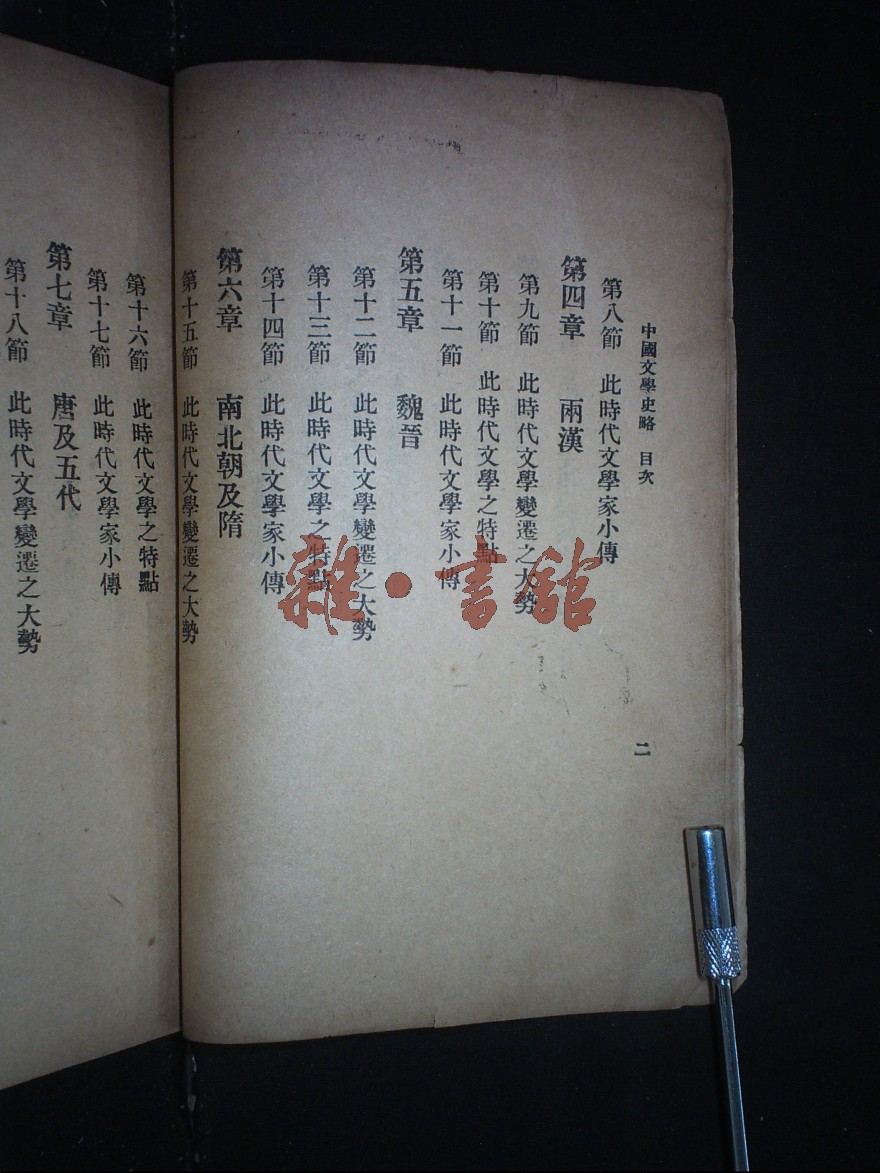 中國文學史略 目次
二
第八節 此時代文學家小傳
第四章 兩漢
第九節 此時代文學變遷之大勢
第十節 此時代文學之特點
第十一節 此時代文學家小傳
第五章 魏晉
第十二節 此時代文學變遷之大勢
第十三節 此時代文學之特點
第十四節 此時代文學家小傳
第六章 南北朝及隋
第十五節 此時代文學變遷之大勢
第十六節 此時代文學之特點
第十七節 此時代文學家小傳
第七章 唐及五代
第十八節 此時代文學變遷之大勢
雜·書舘